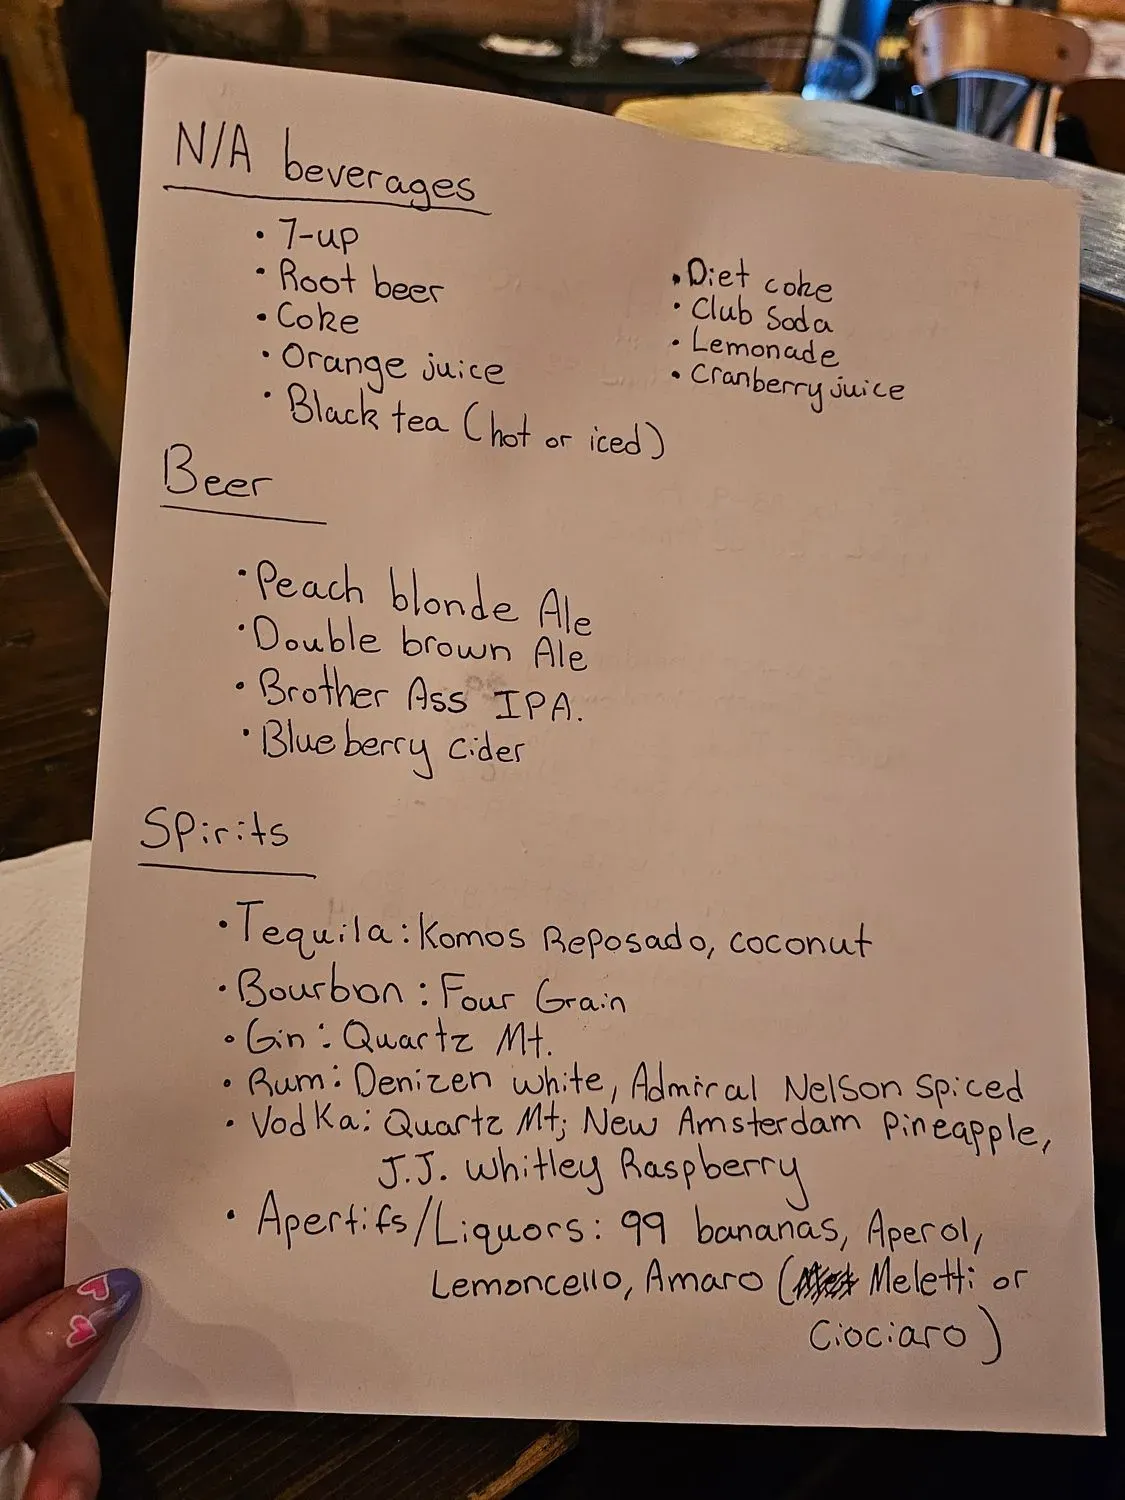 N/A beverages
• 7-up
• Root beer
• Coke
• Orange juice
• Black tea (hot or iced)
• Diet coke
• Club Soda
• Lemonade
• Cranberry juice
Beer
• Peach blonde Ale
• Double brown Ale
• Brother Ass IPA.
• Blueberry cider
Spirits
• Tequila: Komos Reposado, coconut
• Bourbon: Four Grain
• Gin: Quartz Mt.
• Rum: Denizen white, Admiral Nelson spiced
• Vodka: Quartz Mt; New Amsterdam Pineapple,
J.J. Whitley Raspberry
• Apertifs/Liquors: 99 bananas, Aperol,
Lemoncello, Amaro (Meletti or
Ciociaro)